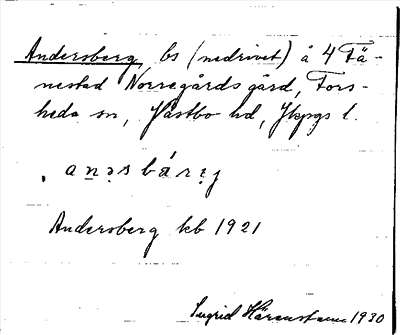 Andersberg, bs (nedrivet,) å 4 Fä-
nestad Norregårds gård, Fors-
heda sn, Västbo hd, Jkpgs l.
anəsbárɛj
Andersberg kb 1921
Ingrid 1930